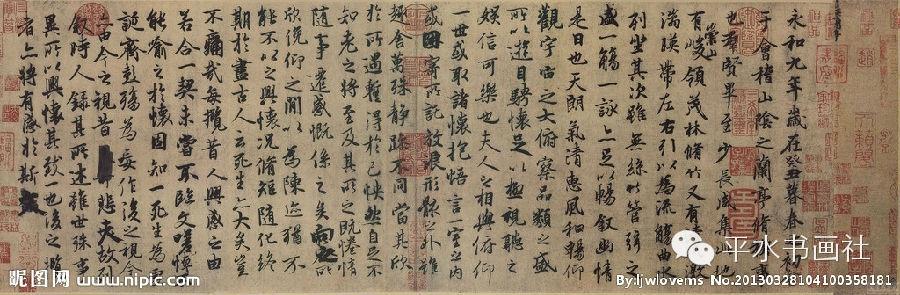 永和九年歲在癸丑暮春之初
于會稽山陰之蘭亭脩稧事
也羣賢畢至少長咸集此地
有崇山峻領茂林脩竹又有清流激
湍暎帶左右引以為流觴曲水
列坐其次雖無絲竹管弦之
盛一觴一詠亦足以暢敘幽情
是日也天朗氣清惠風和暢仰
觀宇宙之大俯察品類之盛
所以遊目騁懷足以極視聽之
娛信可樂也夫人之相與俯仰
一世或取諸懷抱悟言一室之內
或因寄所託放浪形骸之外雖
趣舍萬殊靜躁不同當其欣
於所遇蹔得於己怏然自足不
知老之將至及其所之既惓情
隨事遷感慨係之矣向之所
欣俛仰之閒以為陳迹猶不
能不以之興懷況脩短隨化終
期於盡古人云死生亦大矣豈
不痛哉每攬昔人興感之由
若合一契未嘗不臨文嗟悼不
能喻之於懷固知一死生為虛
誕齊彭殤為妄作後之視今
亦由今之視昔悲夫故列
敘時人錄其所述雖世殊事
異所以興懷其致一也後之攬
者亦將有感於斯文
平水书画社
昵图网
www.nipic.com
By:ljwlovems No:20130328104100358181